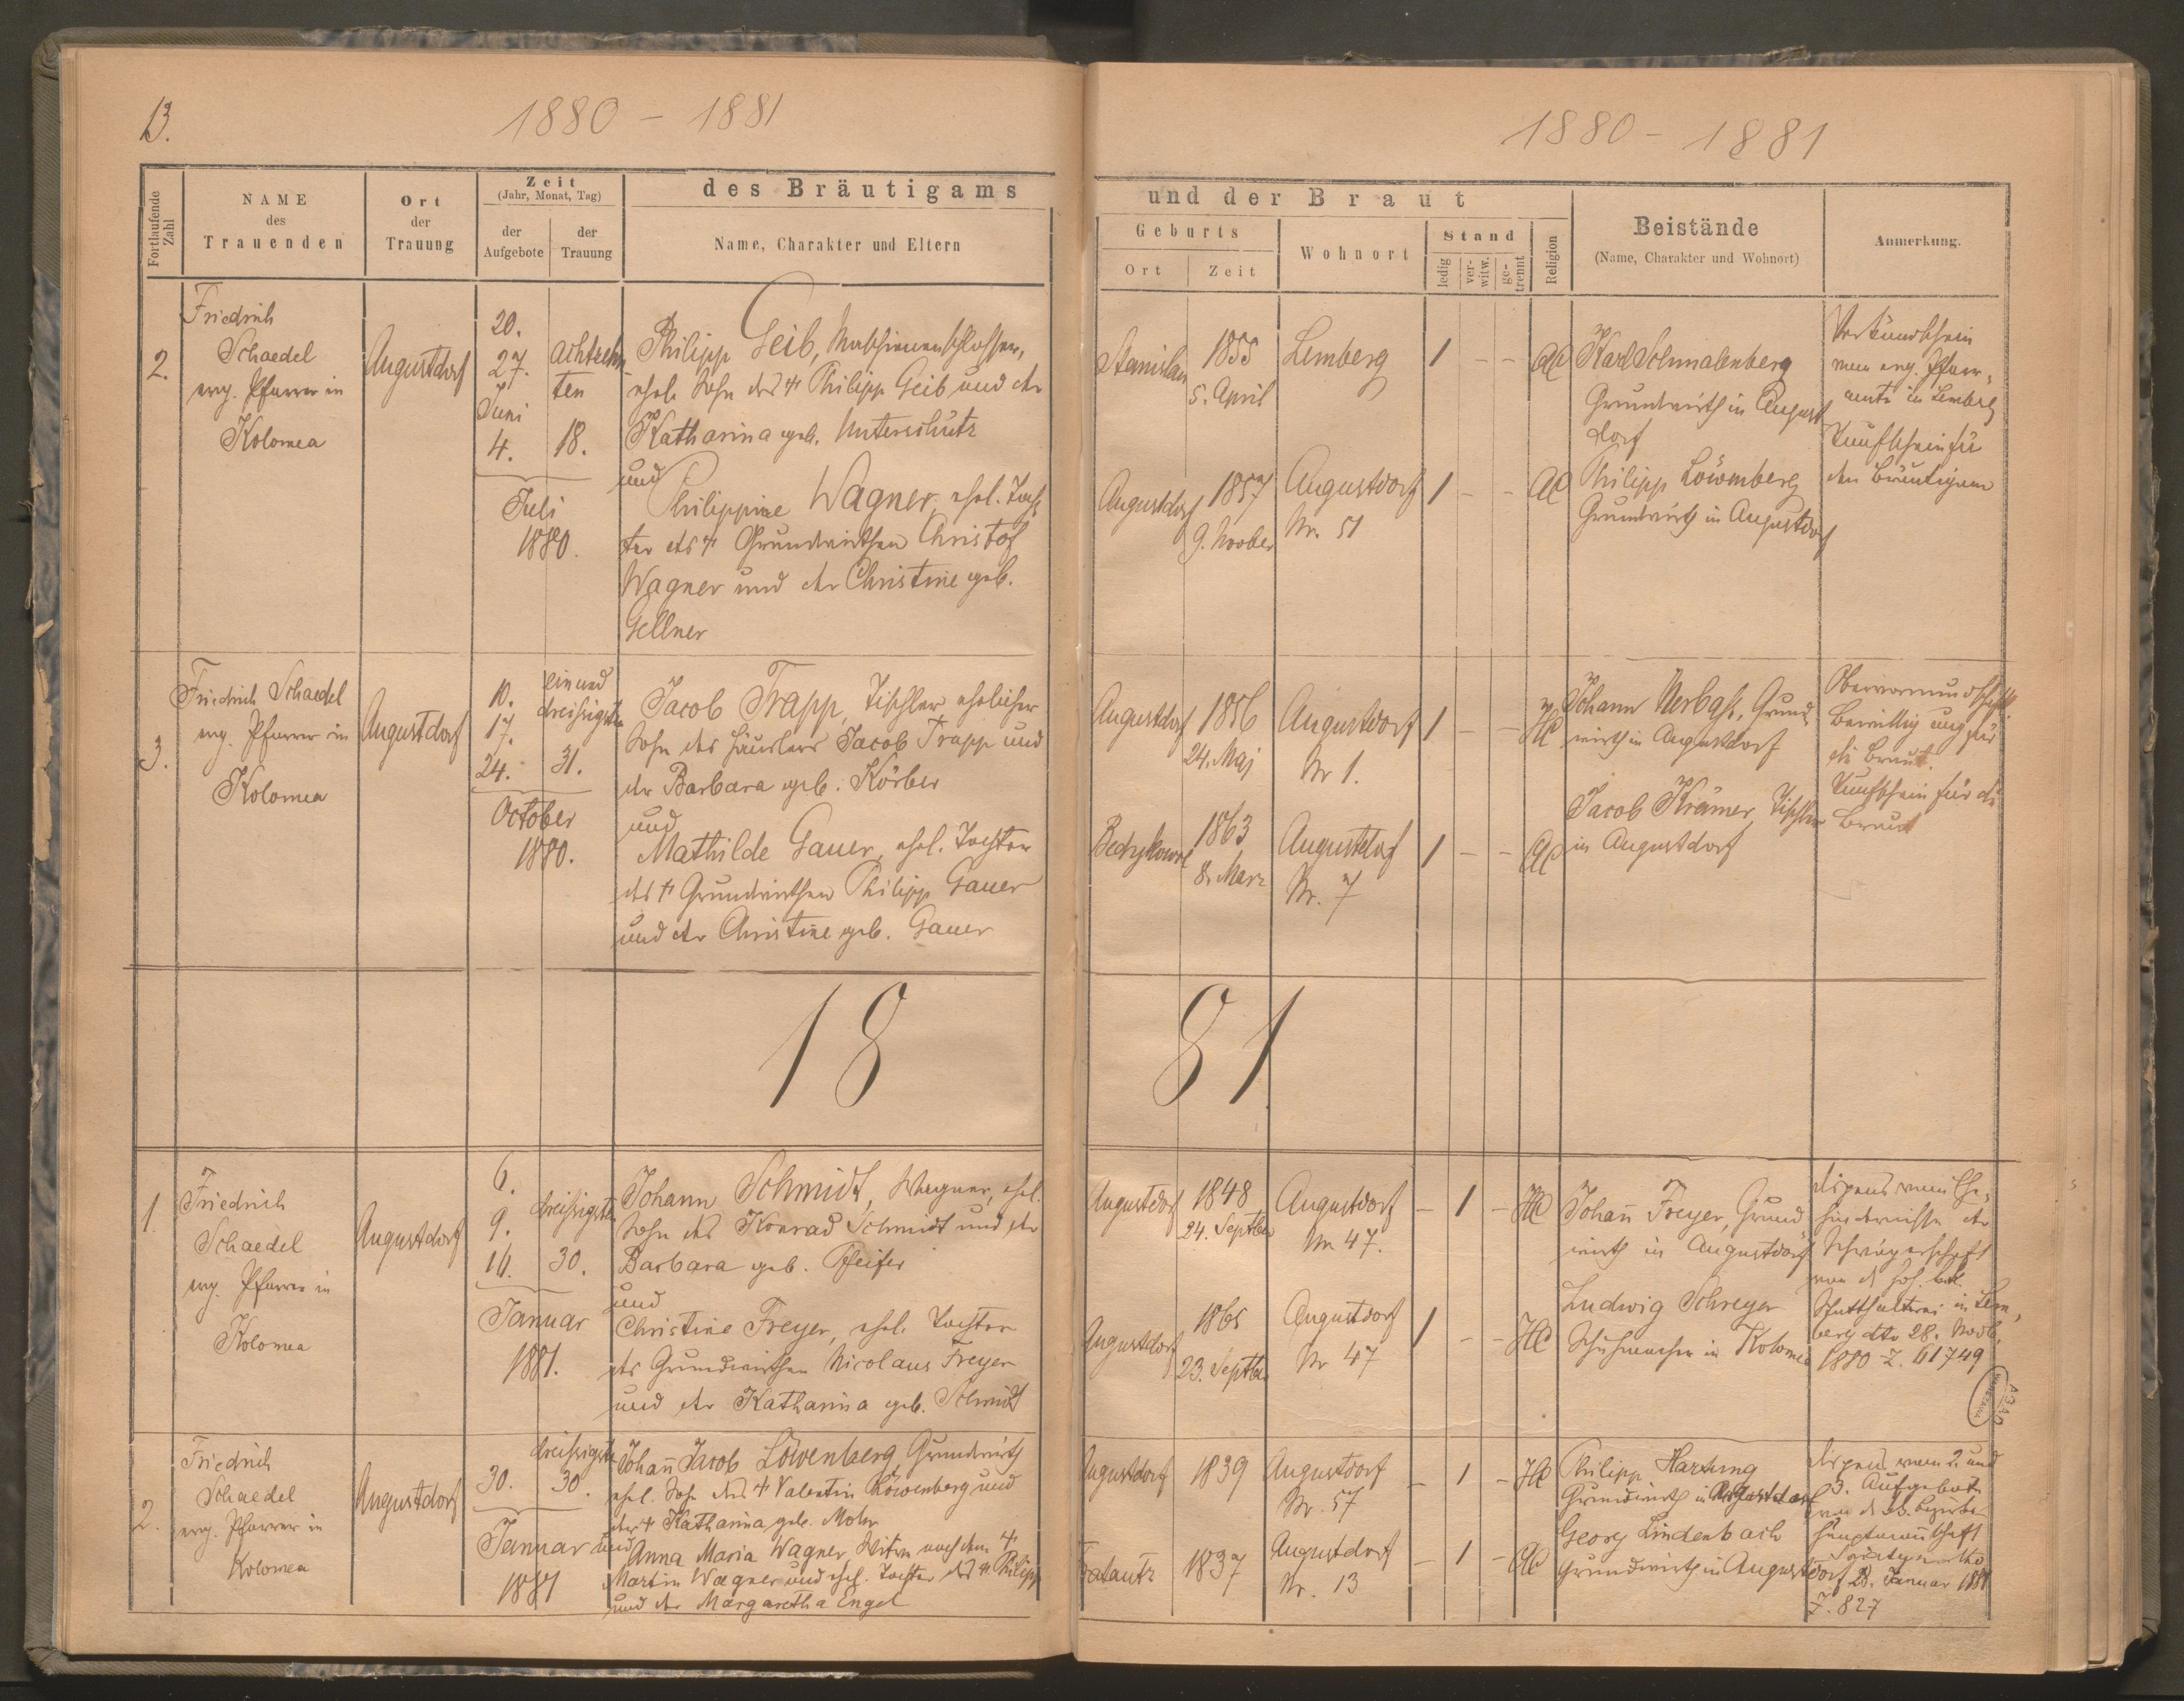 13.
1880 - 1881
1880 - 1881
Fortlaufende Zahl
NAME
des
Trauenden
Ort
der
Trauung
Zeit
(Jahr, Monat, Tag)
der
Aufgebote
der
Trauung
des Bräutigams
Name, Charakter und Eltern
und der Braut
Geburts
Ort
Zeit
Wohnort
Stand
ledig
ver-
witw.
ge-
trennt
Religion
Beistände
(Name, Charakter und Wohnort)
Anmerkung.
2.
Friedrich
Schaedel
evg. Pfarrer in
Kolomea
Augustdorf
20.
27.
Juni
4.
Juli
1880.
achtzehn
ten
18.
Philipp Geib, Maschienenschlosser,
ehel. Sohn des † Philipp Geib und der
Katharina geb. Unterschütz
und
Philippine Wagner, ehel. Toch
ter des † Grundwirthen Christof
Wagner und der Christine geb.
Gellner
Stanislau
1855
5. April
Lemberg
1 - -
AC
Augustdorf
1857
9. Novber
Augustdorf
Nr. 51
1 - -
AC
Karl Schmalenberg
Grundwirth in August
dorf
Philipp Löwenberg
Grundwirth in Augustdorf
Verkündschein
vom evg. Pfarr-
amte in Lemberg
Taufschein für
den Bräutigam
3.
Friedrich Schaedel
evg. Pfarrer in
Kolomea
Augustdorf
10.
17.
24.
October
1880.
ein und
dreißigsten
31.
Jacob Trapp, Tischler ehelicher
Sohn des Häuslers Jacob Trapp und
der Barbara geb. Körber
und
Mathilde Gauer, ehel. Tochter
des † Grundwirthen Philipp Gauer
und der Christine geb. Gauer
Augustdorf
1856
24. Maj
Augustdorf
Nr 1.
1 - -
HC
1863
8. Marz
Augustdorf
Nr. 7
1 - -
AC
Johann Nerbaß, Grund
wirth in Augustdorf
Jacob Krämer, Tischler
in Augustdorf
Obervormundschaftl.
Bewilligung für
die Braut.
Taufschein für die
Braut
18 81
1.
Friedrich
Schaedel
evg. Pfarrer in
Kolomea
Augustdorf
6.
9.
16.
Januar
1881.
dreißigsten
30.
Johann Schmidt, Wagner, ehel.
Sohn des Konrad Schmidt und der
Barbara geb. Pfeifer
und
Christine Freyer, ehel. Tochter
des Grundwirthen Nicolaus Freyer
und der Katharina geb. Schmidt
Augustdorf
1848
24. Septber
Augustdorf
Nr 47.
- 1 -
HC
Augustdorf
23. Septber
Augustdorf
Nr 47
1 - -
HC
Johan̄ Freyer, Grund
wirth in Augustdorf
Ludwig Schreyer
Schuhmacher in Kolomea
Dispens vom Ehe-
hindernisse der
Schwägerschaft
von d. hoh. kk.
Statthalterei in Lem-
berg dto 28. Novb.
1880 Z. 61749
2.
Friedrich
Schaedel
evg. Pfarrer in
Kolomea
Augustdorf
30.
Januar
1881
dreißigsten
30.
Johan̄ Jacob Löwenberg, Grundwirth
ehel. Sohn des † Valentin Löwenberg und
der † Katharina geb. Mohr
und
Anna Maria Wagner, Witwe nach dem †
Martin Wagner und ehel. Tochter des † Philipp
und der Margaretha Engel
Augustdorf
1839
Augustdorf
Nr. 57
- 1 -
HC
Fratautz
1837
Augustdorf
Nr. 13
- 1 -
AC
Philipp Hartung
Grundwirth in Augustdorf
Georg Lindenbach
Grundwirth in Augustdorf
Dispens vom 2. und
3. Aufgebote
von d. kk. Bezirks
hauptmannschaft
28. Januar 1881
Z. 827